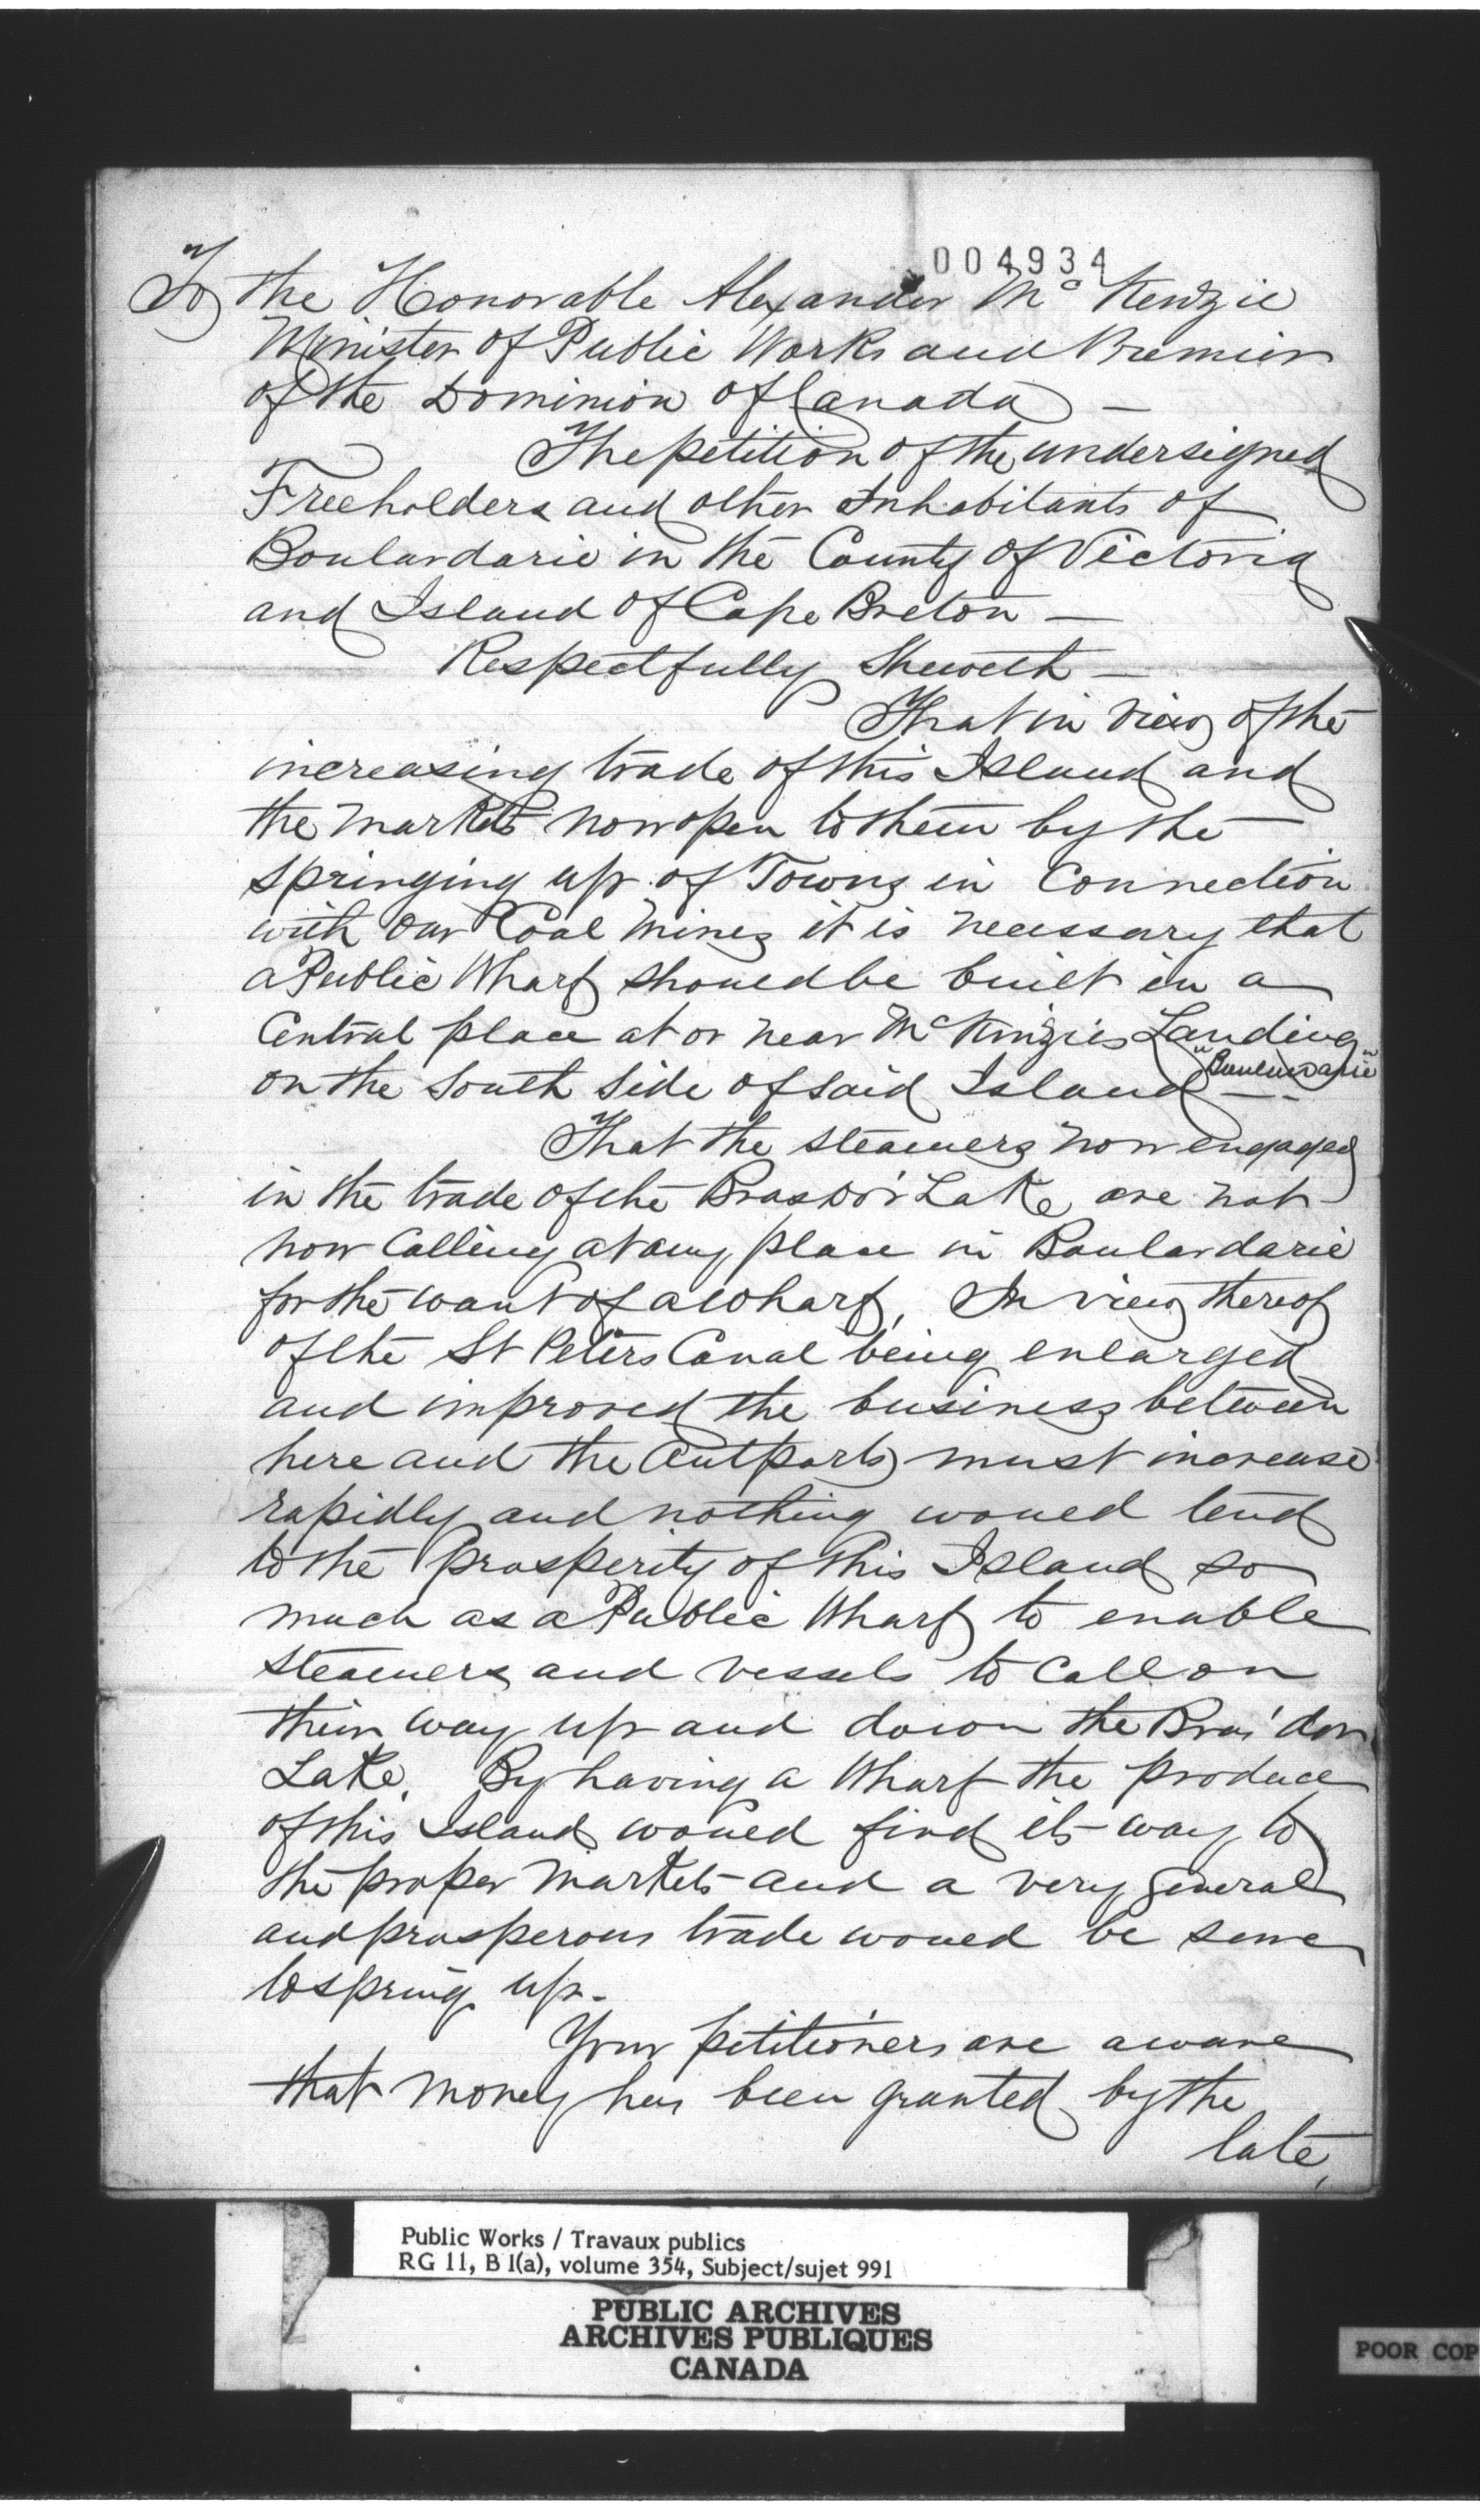 004934
To the Honorable Alexander Mc Kenzie
Minister of Public Works and Premier
of the Dominion of Canada —
The petition of the undersigned
Freeholders and other Inhabitants of
Boulardarie in the County of Victoria
and Island of Cape Breton —
Respectfully Sheweth —
That in view of the
increasing trade of this Island and
the markets now open to them by the
springing up of Towns in Connection
with our Coal Mines it is necessary that
a Public Wharf should be built in a
Central place at or near McKinzies Landing
on the South Side of said Island — "Boulardarie"
That the steamers now engaged
in the trade of the Brasdor Lake are not
now Calling at any place in Boulardarie
for the want of a Wharf, In view thereof
of the St Peters Canal being enlarged
and improved the business between
here and the Outports must increase
rapidly and nothing would tend
to the prosperity of this Island so
much as a Public Wharf to enable
steamers and vessels to call on
their way up and down the Bras'dor
Lake. By having a Wharf the produce
of this Island would find its way to
the proper markets and a very general
and prosperous trade would be sure
to spring up.
Your petitioners are aware
that money has been granted by the
late
Public Works / Travaux publics
RG 11, B 1(a), volume 354, Subject/sujet 991
PUBLIC ARCHIVES
ARCHIVES PUBLIQUES
CANADA
POOR COP